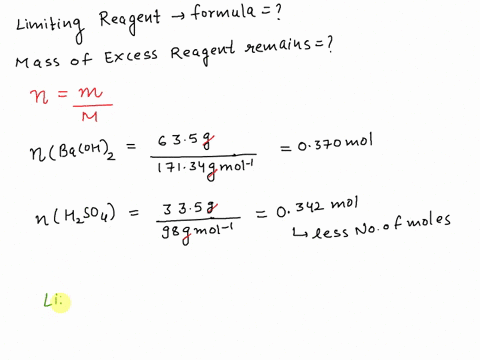 Limiting Reagent → formula = ?
Mass of Excess Reagent remains = ?
n = m/M
n(Ba(OH)₂ = 63.5g/171.34gmol⁻¹ = 0.370 mol
n(H₂SO₄) = 33.5g/98gmol⁻¹ = 0.342 mol
↳ less No. of moles
Li